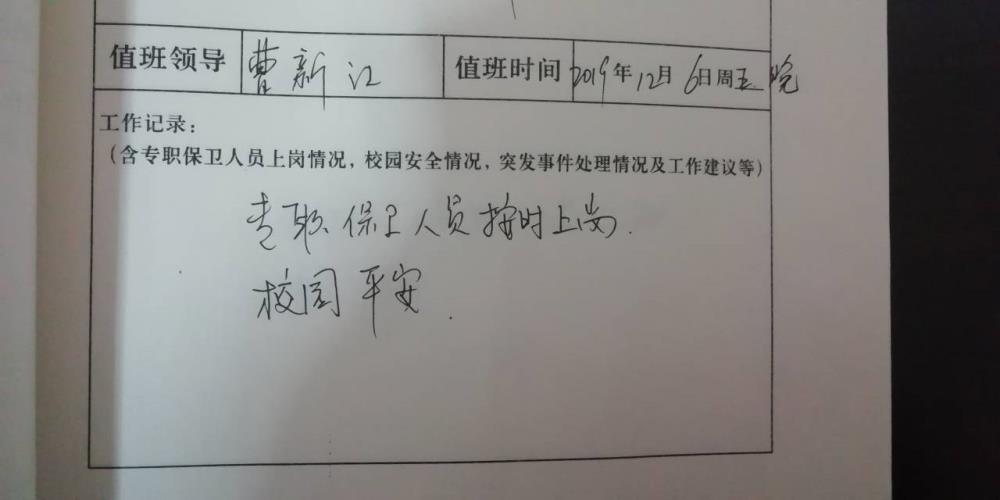 值班领导 曹新江 值班时间 2019年12月6日周五晚
工作记录：
（含专职保卫人员上岗情况，校园安全情况，突发事件处理情况及工作建议等）
专职保卫人员按时上岗.
校园平安.